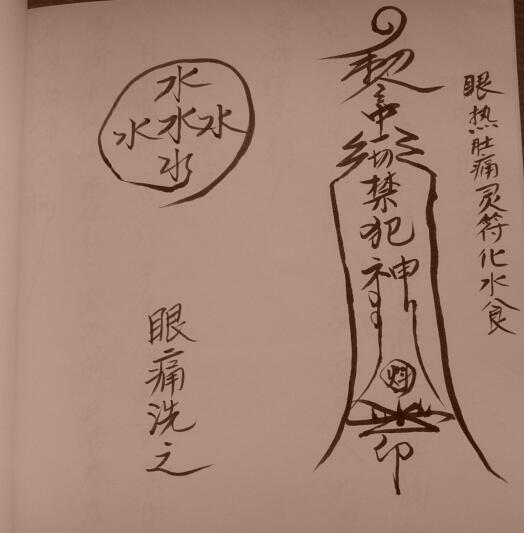 眼热肚痛灵符化水食
敕令
一切
禁犯神
魁
印
水
水水水
水
眼痛洗之